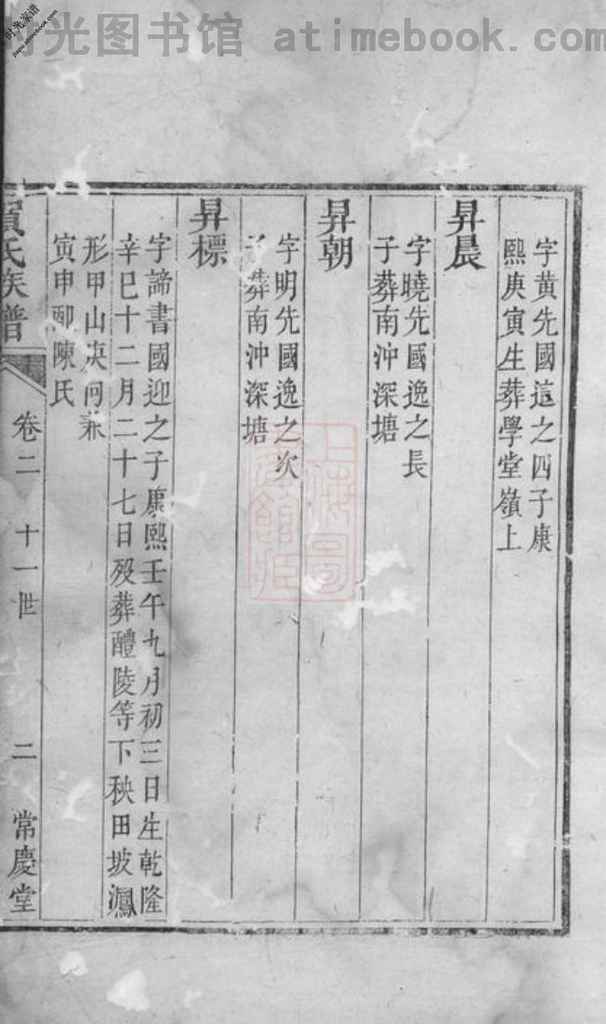 时光图书馆 atimebook.com
字黄先國這之四子康
熙庚寅生葬學堂嶺上
昇晨
字曉先國逸之長
子葬南沖深塘
昇朝
字明先國逸之次
子葬南沖深塘
昇標
字諦書國迎之子康熙壬午九月初三日生乾隆
辛巳十二月二十七日殁葬醴陵等下秧田坡鳳
形甲山庚向兼
寅申配陳氏
氏族譜
卷二 十一世 二 常慶堂